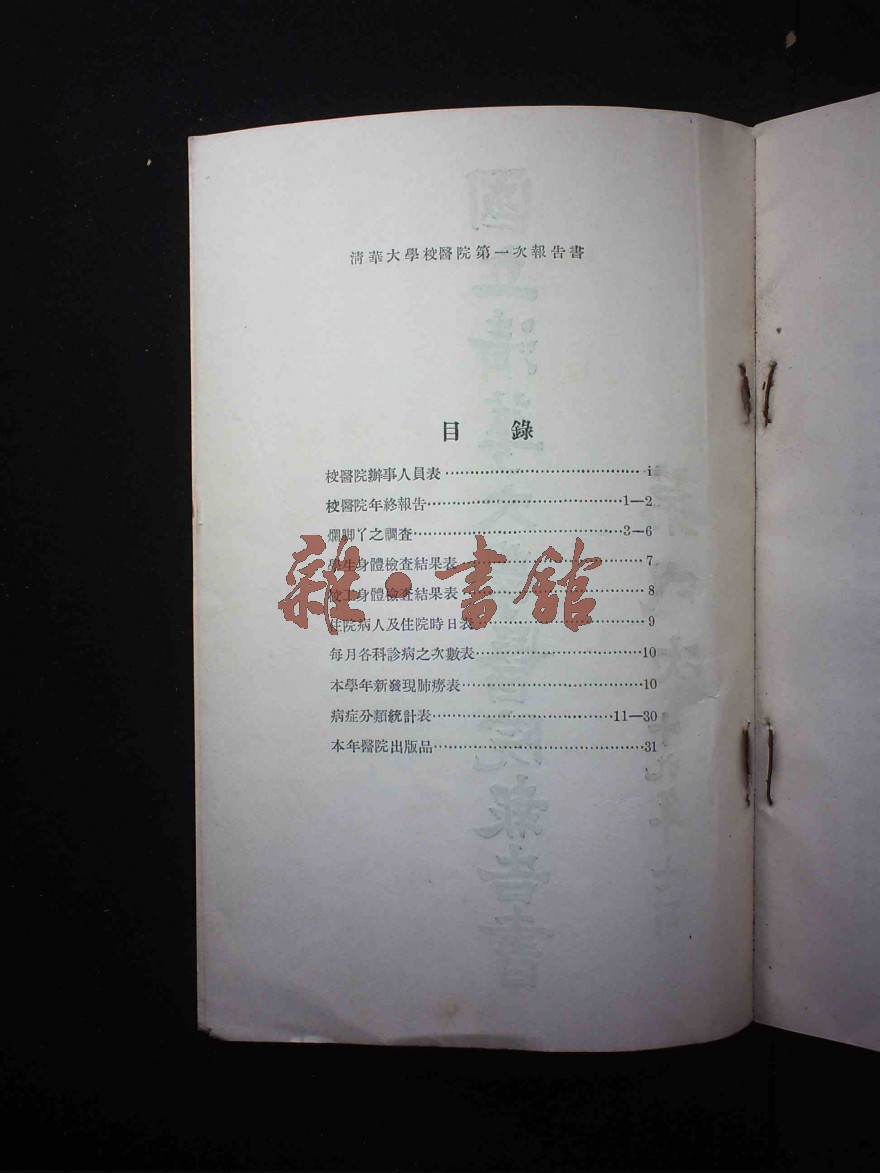 清華大學校醫院第一次報告書
目 錄
校醫院辦事人員表……………………………………i
校醫院年終報告……………………………………1—2
爛脚丫之調查……………………………………3—6
學生身體檢查結果表……………………………………7
校工身體檢查結果表……………………………………8
住院病人及住院時日表……………………………………9
每月各科診病之次數表……………………………………10
本學年新發現肺癆表……………………………………10
病症分類統計表……………………………………11—30
本年醫院出版品……………………………………31
雜·書館
國立清華大學醫院報告書